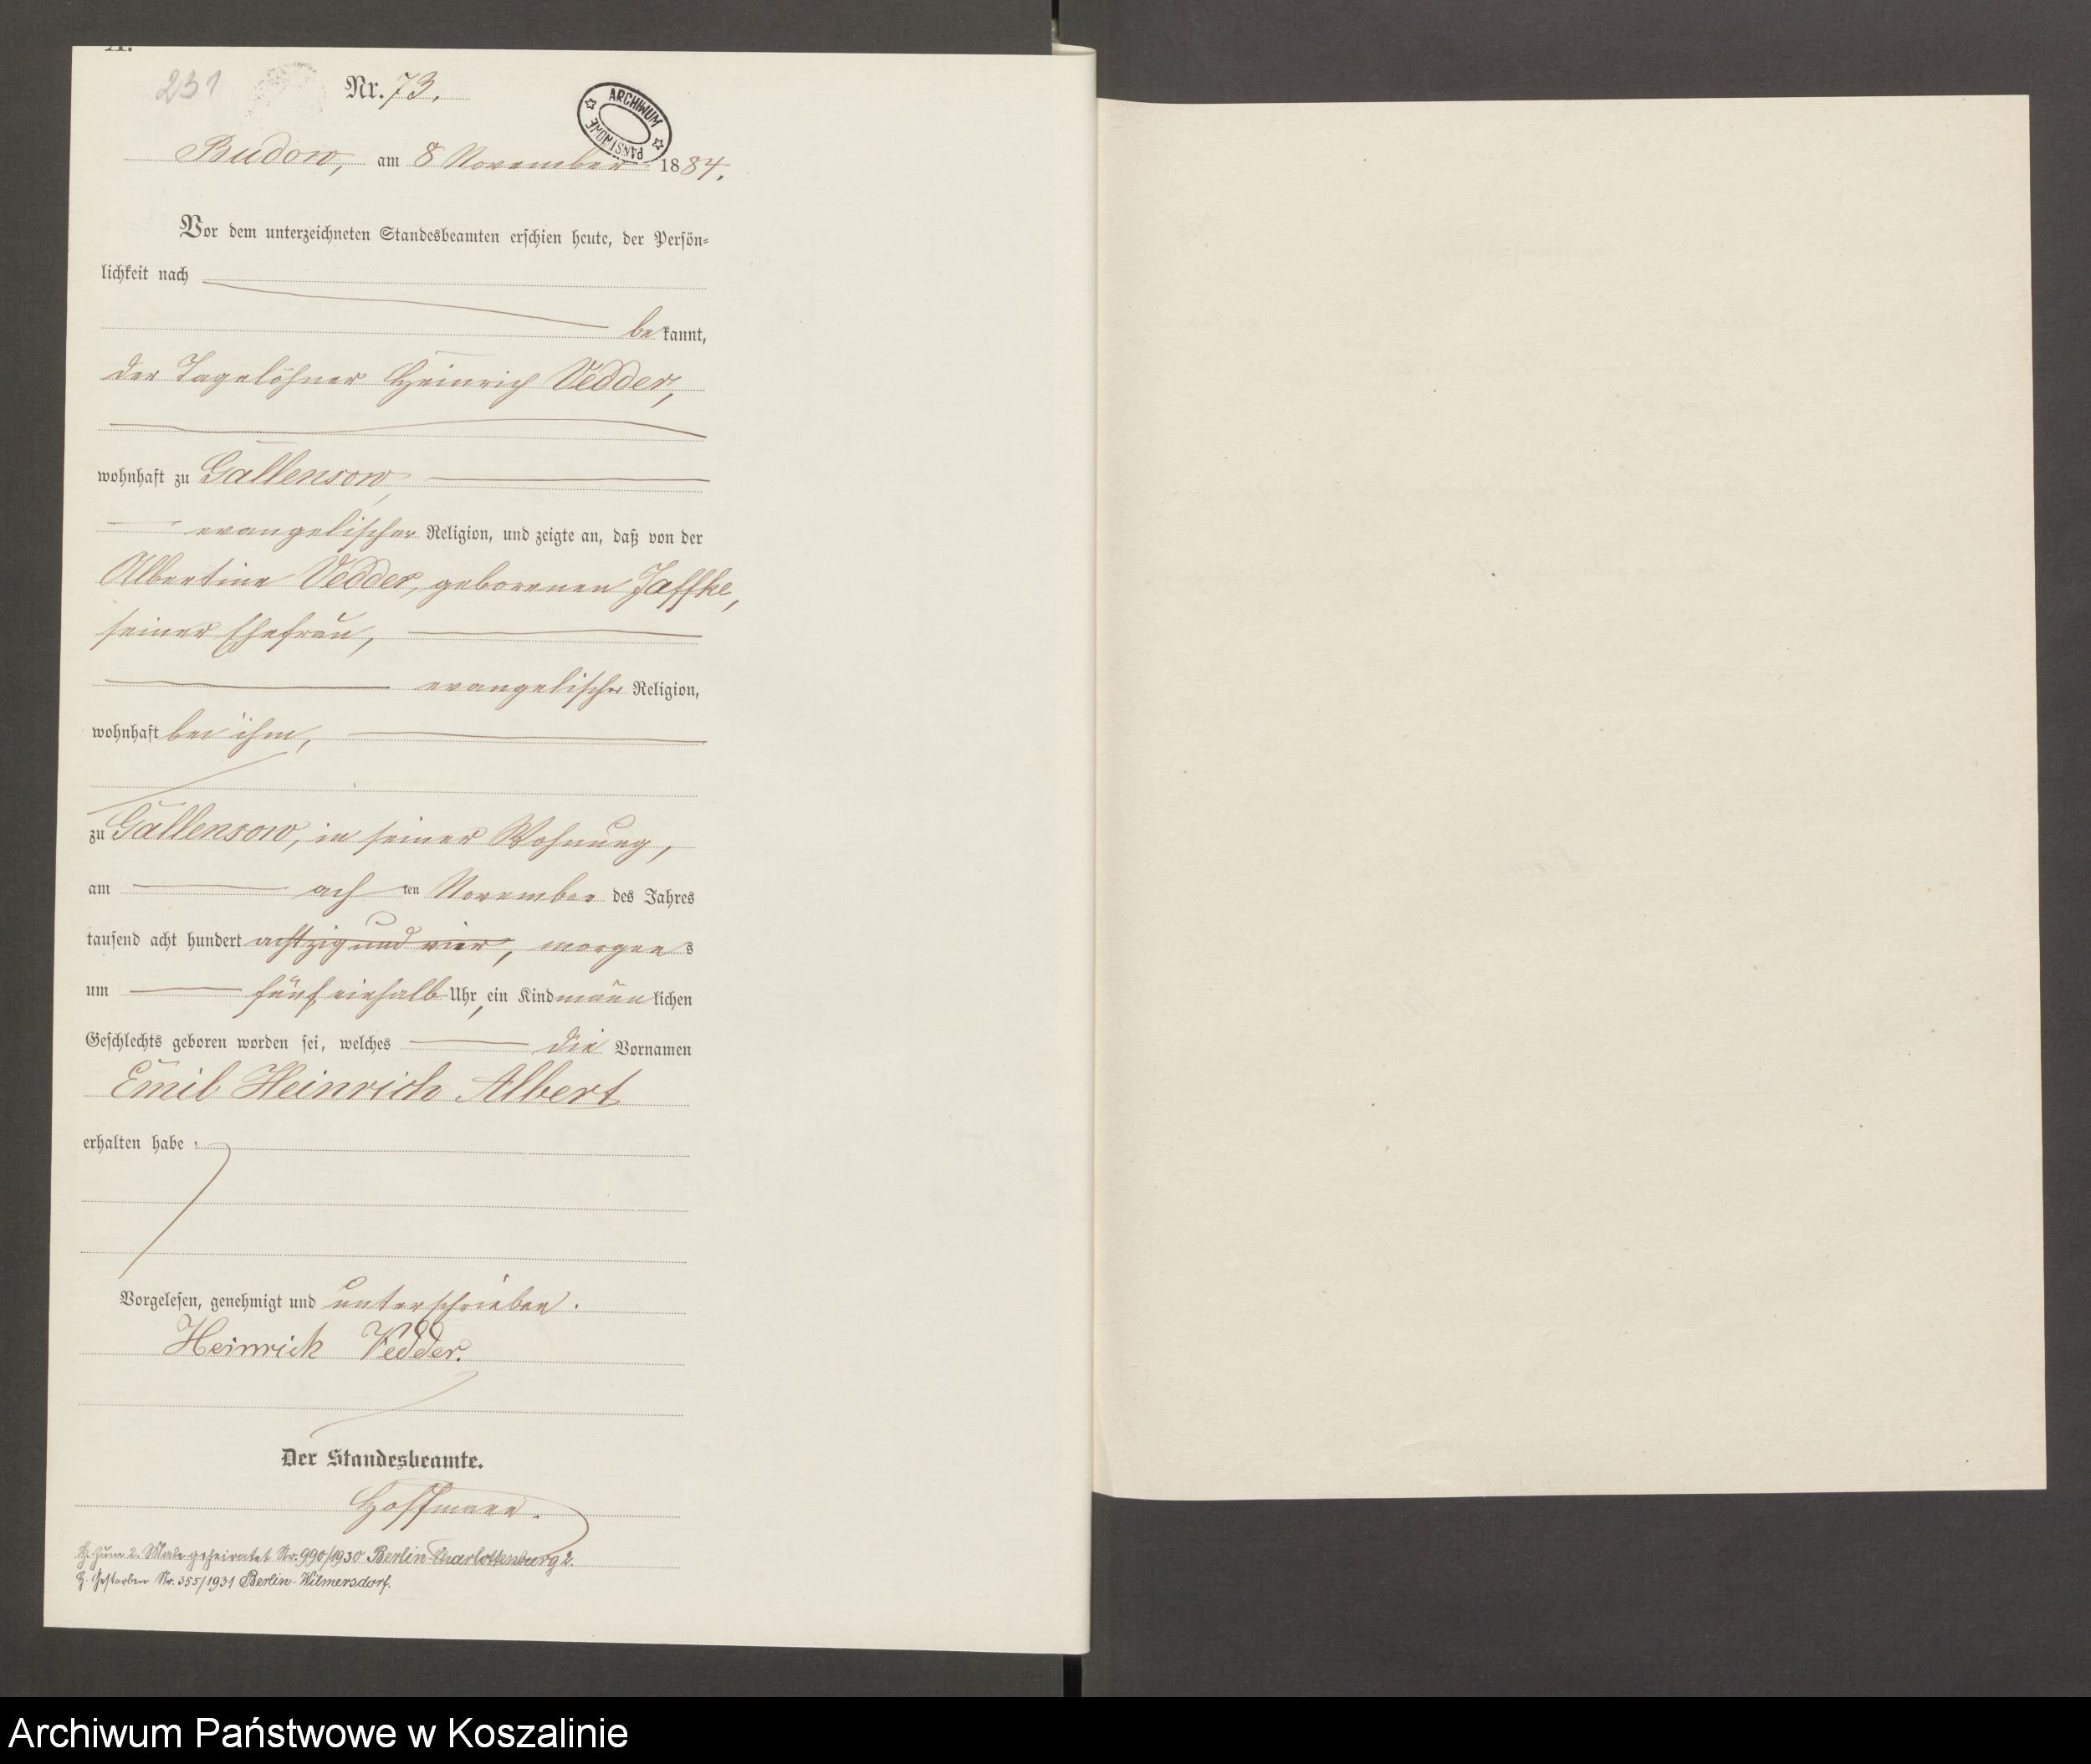 A.
231
Nr. 73.
ARCHIWUM PAŃSTWOWE
Budow, am 8 November 1884.
Vor dem unterzeichneten Standesbeamten erschien heute, der Persön-
lichkeit nach
bekannt,
der Tagelöhner Heinrich Vedder,
wohnhaft zu Gallensow,
evangelischer Religion, und zeigte an, daß von der
Albertine Vedder, geborenen Jaffke,
seiner Ehefrau,
evangelischer Religion,
wohnhaft bei ihm,
zu Gallensow, in seiner Wohnung,
am achten November des Jahres
tausend acht hundert achtzig und vier, morgens
um fünf einhalb Uhr, ein Kind männlichen
Geschlechts geboren worden sei, welches die Vornamen
Emil Heinrich Albert
erhalten habe.
Vorgelesen, genehmigt und unterschrieben.
Heinrich Vedder.
Der Standesbeamte.
Hoffmann.
H. Zum 2. Male geheiratet Nr. 990/1930 Berlin-Charlottenburg 2.
Gestorben Nr. 355/1931 Berlin-Wilmersdorf.
Archiwum Państwowe w Koszalinie